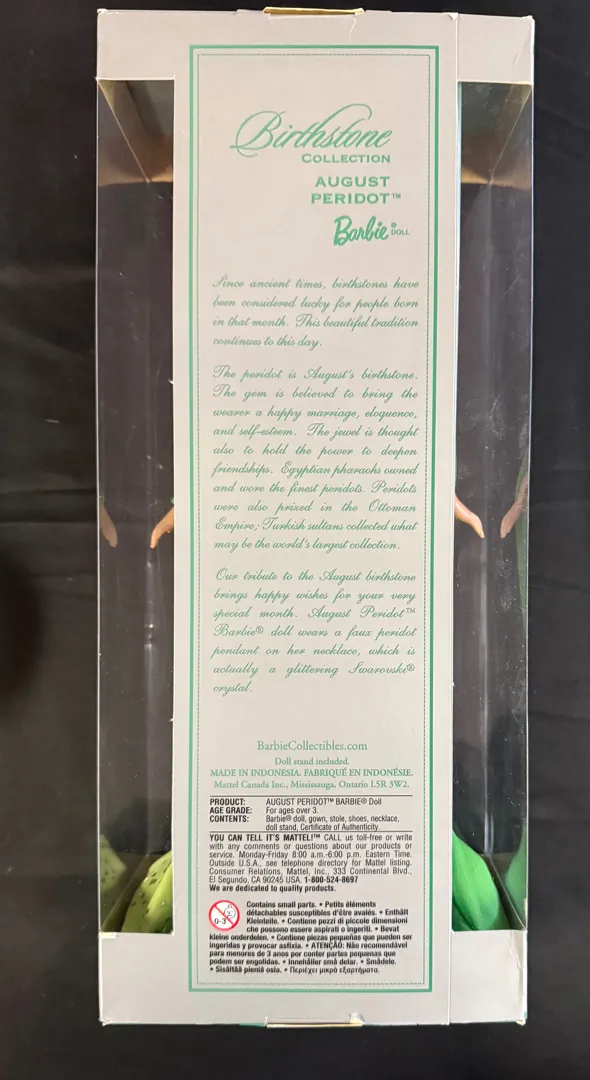 Birthstone
COLLECTION
AUGUST
PERIDOT™
Barbie® DOLL
Since ancient times, birthstones have
been considered lucky for people born
in that month. This beautiful tradition
continues to this day.
The peridot is August's birthstone.
The gem is believed to bring the
wearer a happy marriage, eloquence,
and self-esteem. The jewel is thought
also to hold the power to deepen
friendships. Egyptian pharaohs owned
and wore the finest peridots. Peridots
were also prized in the Ottoman
Empire; Turkish sultans collected what
may be the world's largest collection.
Our tribute to the August birthstone
brings happy wishes for your very
special month. August Peridot™
Barbie® doll wears a faux peridot
pendant on her necklace, which is
actually a glittering Swarovski®
crystal.
BarbieCollectibles.com
Doll stand included.
MADE IN INDONESIA. FABRIQUÉ EN INDONÉSIE.
Mattel Canada Inc., Mississauga, Ontario L5R 3W2.
PRODUCT: AUGUST PERIDOT™ BARBIE® Doll
AGE GRADE: For ages over 3.
CONTENTS: Barbie® doll, gown, stole, shoes, necklace,
doll stand, Certificate of Authenticity.
YOU CAN TELL IT'S MATTEL!™ CALL us toll-free or write
with any comments or questions about our products or
service. Monday-Friday 8:00 a.m.-6:00 p.m. Eastern Time.
Outside U.S.A., see telephone directory for Mattel listing.
Consumer Relations, Mattel, Inc., 333 Continental Blvd.,
El Segundo, CA 90245 USA. 1-800-524-8697
We are dedicated to quality products.
0-3
Contains small parts. • Petits éléments
détachables susceptibles d'être avalés. • Enthält
Kleinteile. • Contiene pezzi di piccole dimensioni
che possono essere aspirati o ingeriti. • Bevat
kleine onderdelen. • Contiene piezas pequeñas que pueden ser
ingeridas y provocar asfixia. • ATENÇÃO: Não recomendável
para menores de 3 anos por conter partes pequenas que
podem ser engolidas. • Innehåller små delar. • Smådele.
• Sisältää pieniä osia. • Περιέχει μικρά εξαρτήματα.